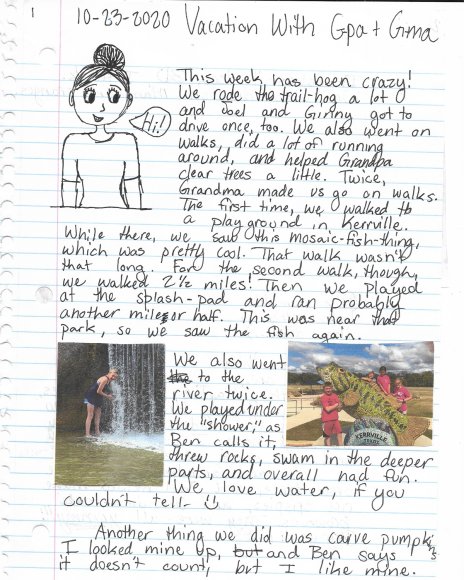 1
10-23-2020 Vacation With Gpa + Gma
This week has been crazy!
We rode the trail-hog a lot
and Joel and Ginny got to
drive once, too. We also went on
walks, did a lot of running
around, and helped Grandpa
clear trees a little. Twice,
Grandma made us go on walks.
The first time, we walked to
a playground in Kerrville.
Hi!
While there, we saw this mosaic-fish-thing,
which was pretty cool. That walk wasn't
that long. For the second walk, though,
we walked 2 1/2 miles! Then we played
at the splash-pad and ran probably
another mile or half. This was near that
park, so we saw the fish again.
We also went
to the
river twice.
We played under
the "shower," as
Ben calls it,
threw rocks, swam in the deeper
parts, and overall had fun.
We love water, if you
couldn't tell.
KERRVILLE
TEXAS
Another thing we did was carve pumpkins
I looked mine up, but and Ben says
it doesn't count, but I like mine.